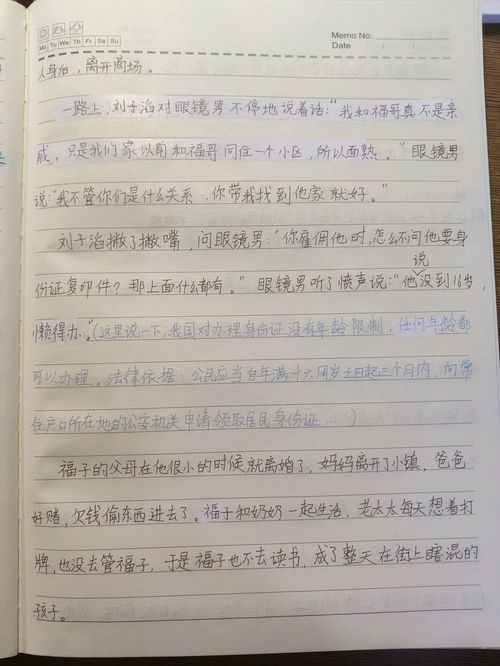 Memo No.
Mo Tu We Th Fr Sa Su
Date / /
人身后，离开商场。
一路上，刘子滔对眼镜男不停地说着话：“我和福哥真不是亲
戚，只是我们家以前和福哥同住一个小区，所以面熟。”眼镜男
说：“我不管你们是什么关系，你带我找到他家就好。”
刘子滔撇了撇嘴，问眼镜男：“你雇佣他时，怎么不问他要身
份证复印件？那上面什么都有。”眼镜男听了愤声说：“他说没到16岁，
懒得办。”（这里说一下，我国对办理身份证没有年龄限制，任何年龄都
可以办理。法律依据：公民应当自年满十六周岁之日起三个月内，向常
住户口所在地的公安机关申请领取居民身份证……）
福子的父母在他很小的时候就离婚了，妈妈离开了小镇，爸爸
好赌，欠钱偷东西进去了。福子和奶奶一起生活，老太太每天想着打
牌，也没去管福子，于是福子也不去读书，成了整天在街上瞎混的
孩子。